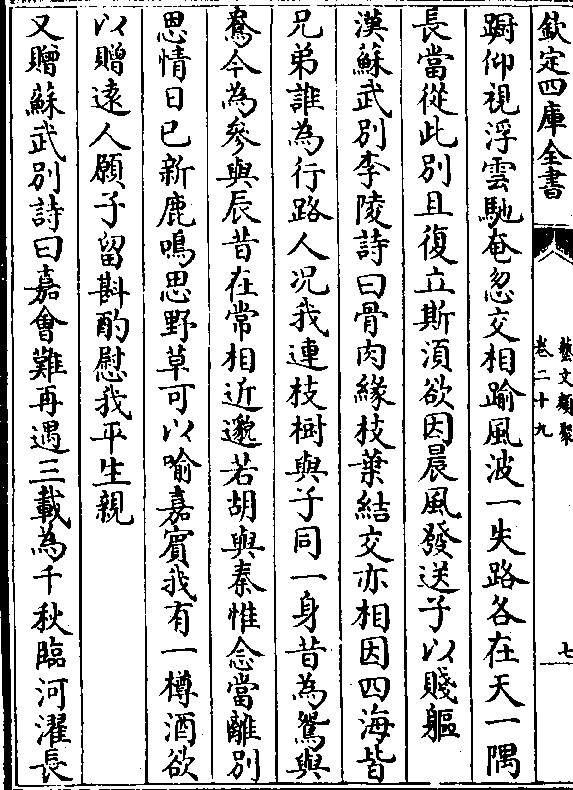 欽定四庫全書
藝文類聚
卷二十九
七
蹰仰視浮雲馳奄忽交相踰風波一失路各在天一隅
長當從此別且復立斯湏欲因晨風發送子以賤軀
漢蘇武別李陵詩曰骨肉緣枝葉結交亦相因四海皆
兄弟誰為行路人况我連枝樹與子同一身昔為鴛與
鴦今為參與辰昔在常相近邈若胡與秦惟念當離別
思情日已新鹿鳴思野草可以喻嘉賓我有一樽酒欲
以贈逺人願子留斟酌慰我平生親
又贈蘇武別詩曰嘉會難再遇三載為千秋臨河濯長